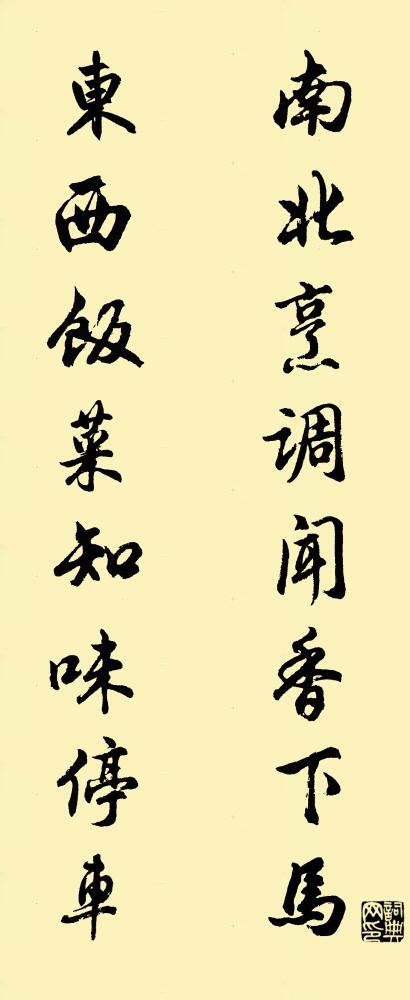 南北烹调闻香下馬
東西飯菜知味停車
詞典
网印